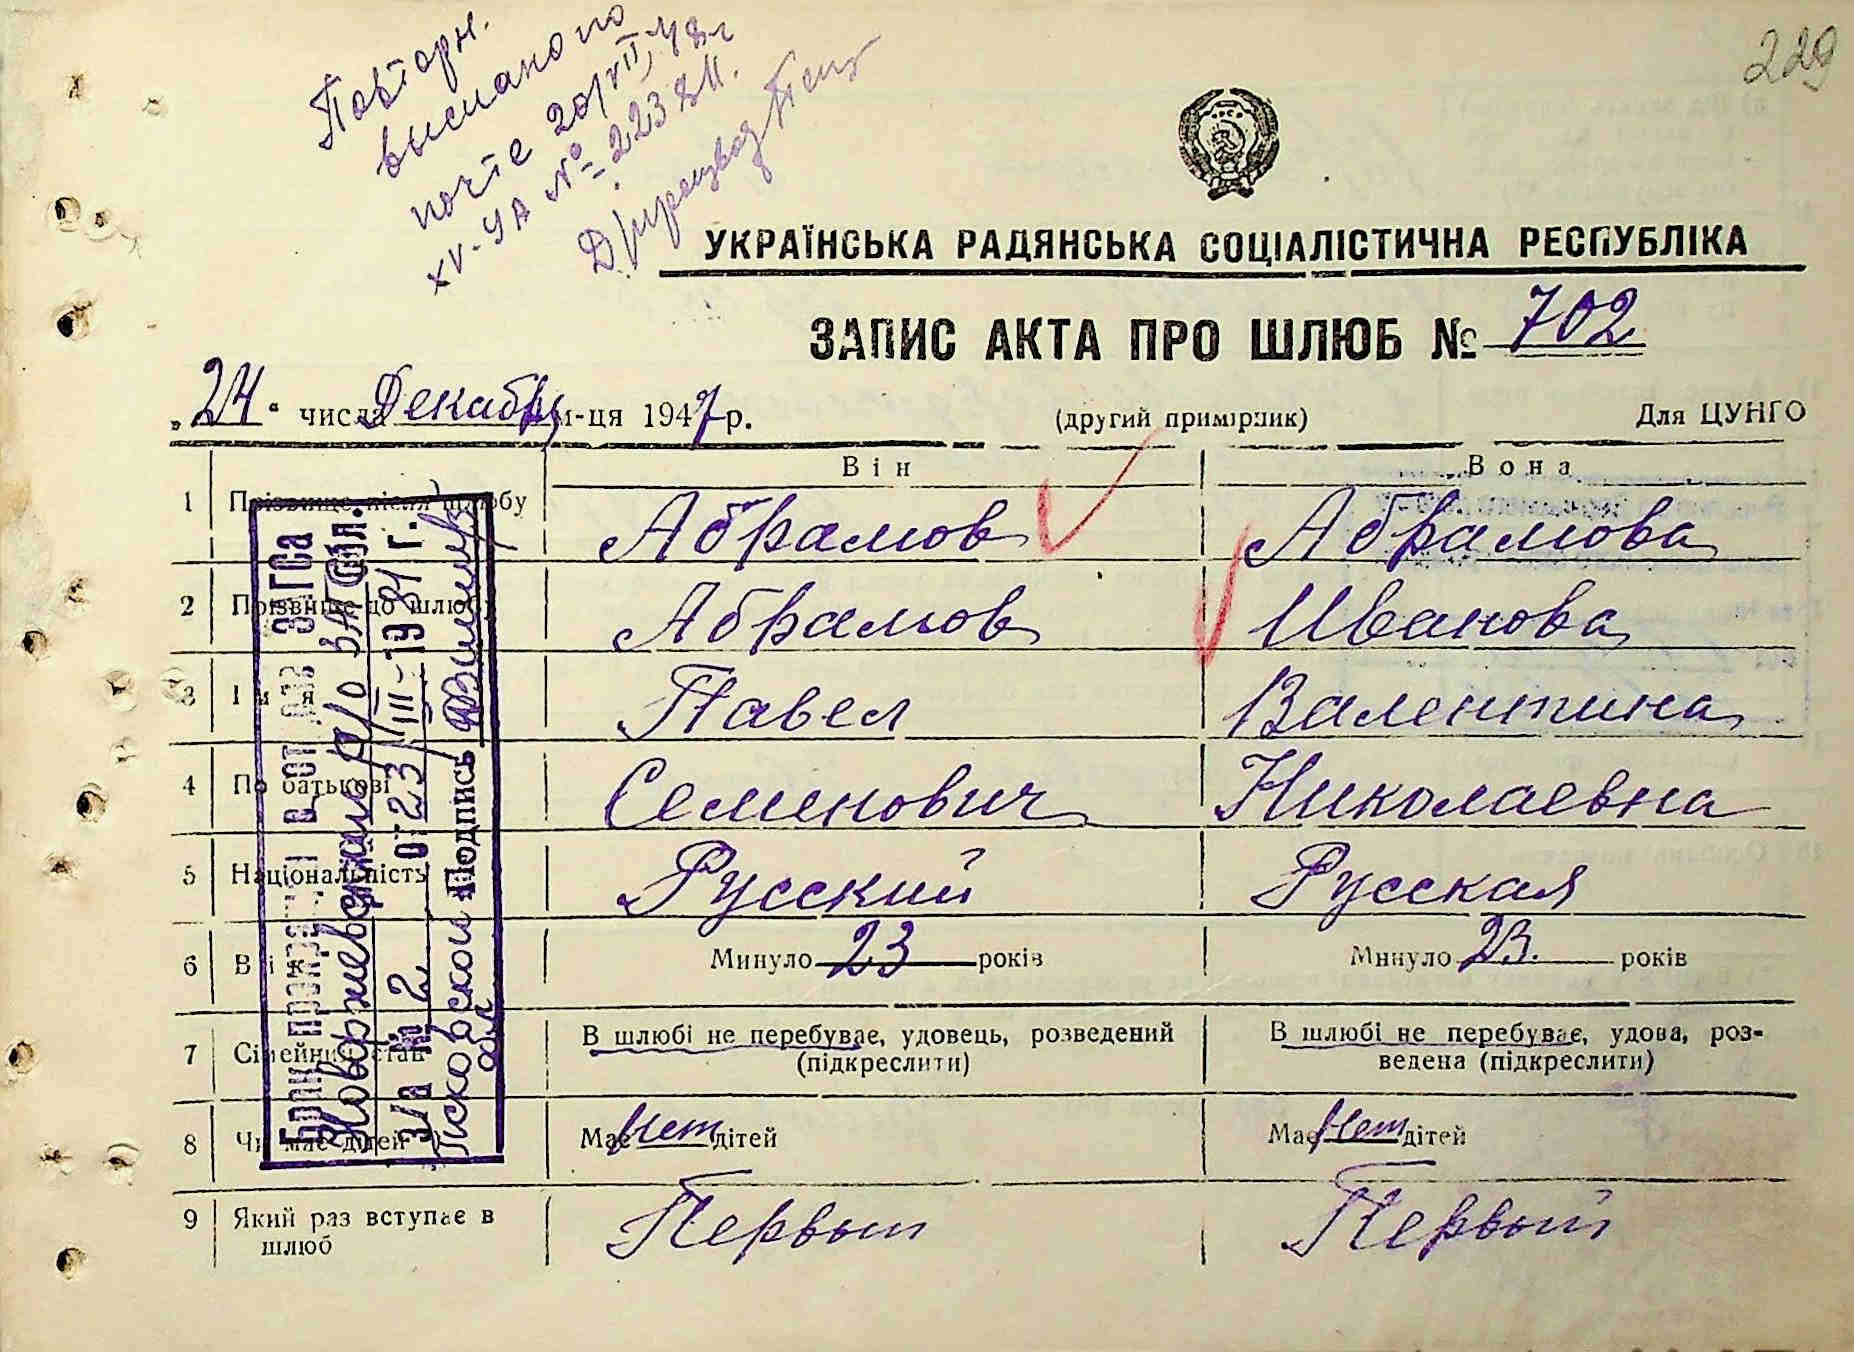 229
Повторн.
выслано по
почте 20/VII 48 г
XV-УА № 223811.
УКРАЇНСЬКА РАДЯНСЬКА СОЦІАЛІСТИЧНА РЕСПУБЛІКА
ЗАПИС АКТА ПРО ШЛЮБ № 702
„24“ числа Декабря м-ця 1947 р. (другий примірник) Для ЦУНГО
Він Вона
1 Прізвище після шлюбу Абрамов Абрамова
2 Прізвище до шлюбу Абрамов Иванова
3 Імя Павел Валентина
4 По батькові Семенович Николаевна
5 Національність Русский Русская
6 Вік Минуло 23 років Минуло 23. років
7 Сімейний стан В шлюбі не перебуває, удовець, розведений (підкреслити) В шлюбі не перебуває, удова, роз-
ведена (підкреслити)
8 Чи має дітей Має Нет дітей Має Нет дітей
9 Який раз вступає в Первый Первый
шлюб
Брак прекращен в отд раз ЗАГСа
Новоржевским р/о ЗАГС обл.
З/а № 2 от 23/III-1981 г.
Псковской Подпись
обл